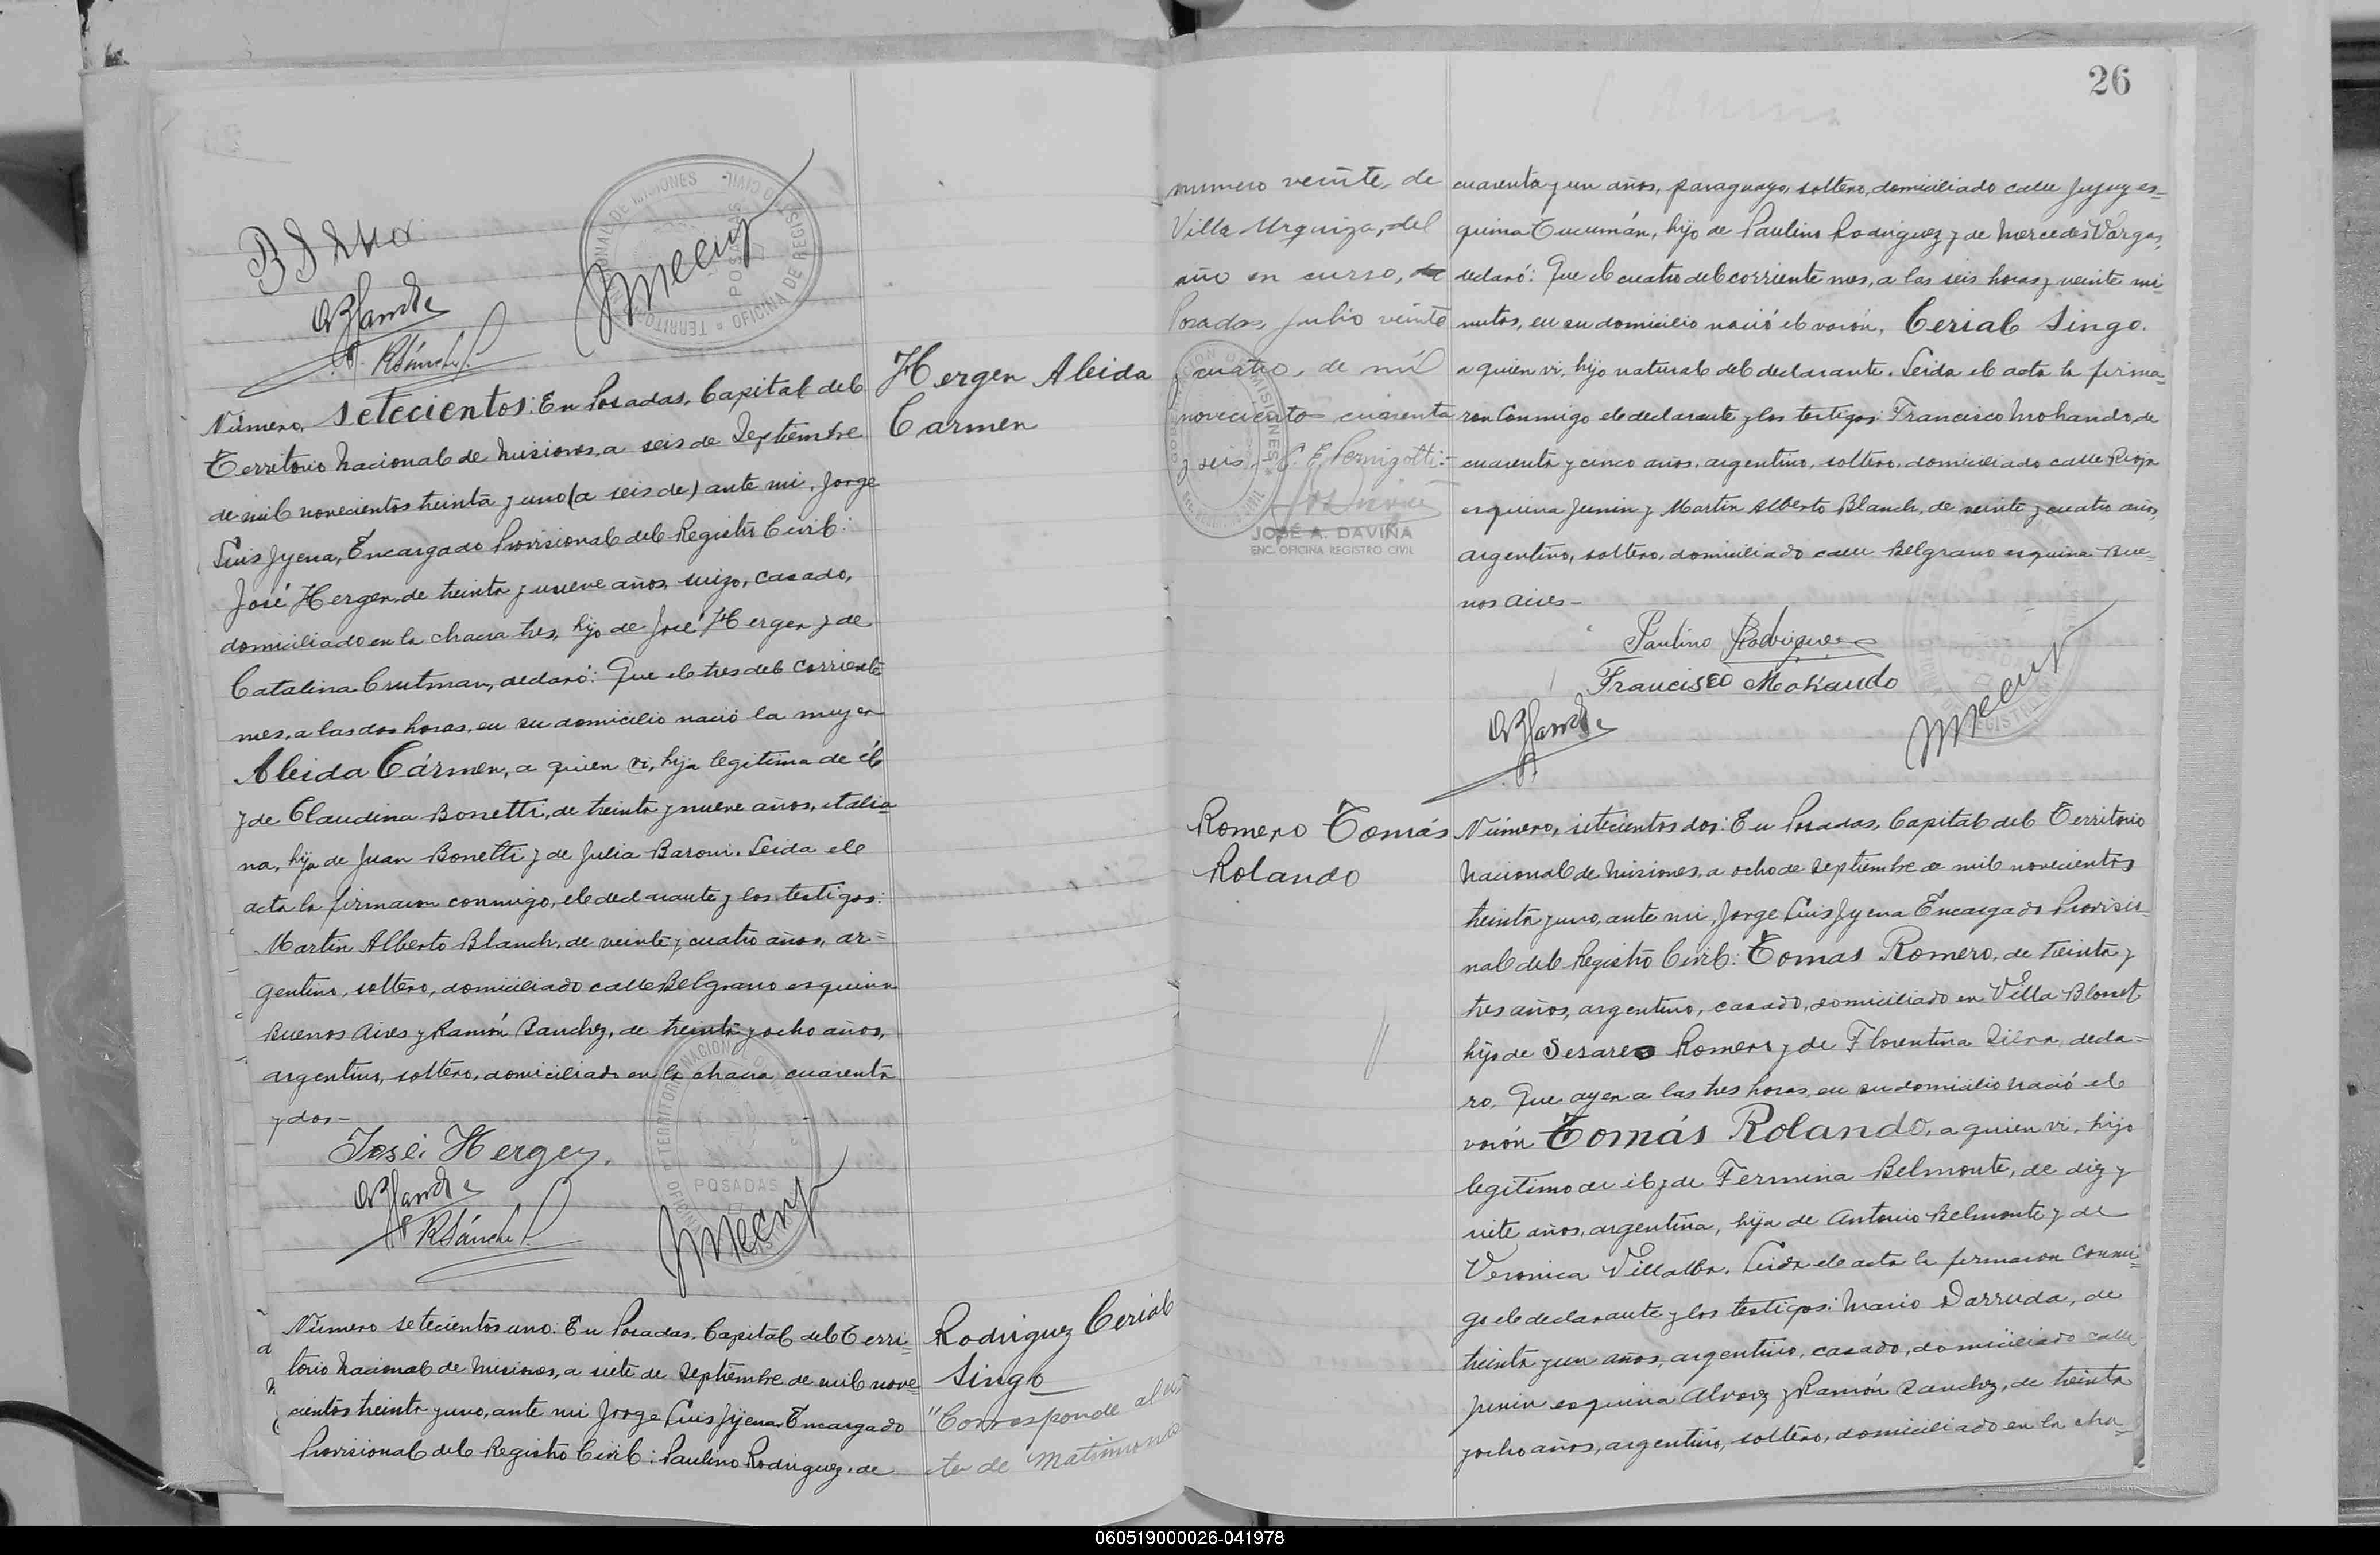 Número, setecientos: En Posadas, Capital del
Territorio Nacional de Misiones, a seis de Septiembre
de mil novecientos treinta y uno (a seis de) ante mi, Jorge
Luis Jyena, Encargado Provisional del Registro Civil:
José Hergen, de treinta y nueve años, suizo, casado,
domiciliado en la chacra tres, hijo de José Hergen y de
Catalina Crutman, declaró: Que el tres del corriente
mes, a las dos horas, en su domicilio nació la mujer
Aleida Cármen, a quien vi, hija legitima de él
y de Claudina Bonetti, de treinta y nueve años, italia=
na, hija de Juan Bonetti y de Julia Baroni. Leida el
acta la firmaron conmigo, el declarante y los testigos:
Martin Alberto Blanch, de veinte y cuatro años, ar=
gentino, soltero, domiciliado calle Belgrano esquina
Buenos Aires y Ramón Sanchez, de treinta y ocho años,
argentino, soltero, domiciliado en la chacra cuarenta
y dos—
José Hergen.
RSánchez
Hergen Aleida
Carmen
TERRITORIO NACIONAL DE MISIONES
OFICINA DE REGISTRO CIVIL
POSADAS
Número setecientos uno: En Posadas, Capital del Terri=
torio Nacional de Misiones, a siete de Septiembre de mil nove=
cientos treinta y uno, ante mi Jorge Luis Jyena Encargado
Provisional del Registro Civil: Paulino Rodriguez, de
Rodriguez Cerial
Singo
"Corresponde al
ta de Matrimonio
26
numero veinte, de
Villa Urquiza, del
año en curso,
Posadas, Julio veinte
y cuatro, de mil
novecientos cuarenta
y seis.- C. E. Pernigotti.-
JOSÉ A. DAVIÑA
ENC. OFICINA REGISTRO CIVIL
cuarenta y un años, paraguayo, soltero, domiciliado calle Jujuy es=
quina Tucumán, hijo de Paulino Rodriguez y de Mercedes Vargas,
declaró: Que el cuatro del corriente mes, a las seis horas y veinte mi=
nutos, en su domicilio nació el varón, Cerial Singo.
a quien vi, hijo natural del declarante. Leida el acta la firma=
ron conmigo el declarante y los testigos: Francisco Mohando, de
cuarenta y cinco años, argentino, soltero, domiciliado calle Rioja
esquina Junin y Martin Alberto Blanch, de veinte y cuatro años,
argentino, soltero, domiciliado calle Belgrano esquina Bue=
nos Aires—
Paulino Rodriguez
Francisco Mohando
Romero Tomás
Rolando
Número, setecientos dos: En Posadas, Capital del Territorio
Nacional de Misiones, a ocho de Septiembre de mil novecientos
treinta y uno, ante mi, Jorge Luis Jyena Encargado Provisio=
nal del Registro Civil: Tomas Romero, de treinta y
tres años, argentino, casado, domiciliado en Villa Blosset
hijo de Sesareo Romero y de Florentina Silva, decla=
ro. Que ayer a las tres horas, en su domicilio nació el
varón Tomás Rolando, a quien vi, hijo
legitimo de el y de Fermina Belmonte, de diez y
siete años, argentina, hija de Antonio Belmonte y de
Veronica Villalba. Leida el acta la firmaron conmi=
go el declarante y los testigos: Mario Darruda, de
treinta y un años, argentino, casado, domiciliado calle
Junin esquina Alvarez y Ramón Sanchez, de treinta
y ocho años, argentino, soltero, domiciliado en la cha=
060519000026-041978